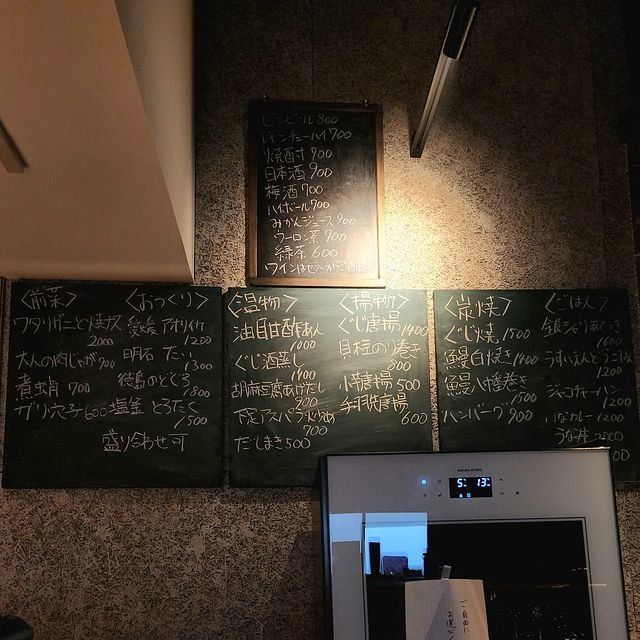 ビンビール 800
レモンチューハイ 700
焼酎 700
日本酒 900
梅酒 700
ハイボール 700
みかんジュース 900
ウーロン茶 700
緑茶 600
ワインはセラーからご自由に
〈前菜〉
ワタリガニと焼ナス
2000
大人の肉じゃが 900
煮蛸 700
ガリ穴子 600
〈おつくり〉
愛媛 アオリイカ
1200
明石 たい
1300
徳島のどくろ
1800
塩釜 とろたく
1500
盛り合わせ可
〈温物〉
油目甘酢あん
1000
ぐじ酒蒸し
1400
胡麻豆腐あげだし
900
下足アスパラ炒め
700
だしまき 500
〈揚物〉
ぐじ唐揚
1400
貝柱のり巻き
800
小芋唐揚 500
手羽先唐揚
600
〈炭焼〉
ぐじ焼 1500
鰻白焼き 1400
鰻八幡巻き
1500
ハンバーグ 900
〈ごはん〉
銀シャリ
1600
うすいえんどうごはん
1200
ジャコチャーハン
1200
カレー 1200
うな丼
SAKURA WORKS
5 13
ご自由に